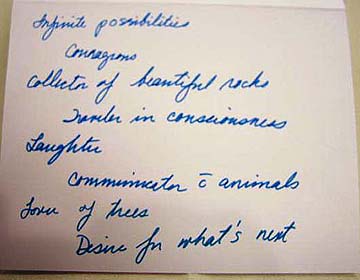 Infinite possibilities
Courageous
Collector of beautiful rocks
Traveler in consciousness
Laughter
Communicator c̄ animals
Lover of trees
Desire for what's next